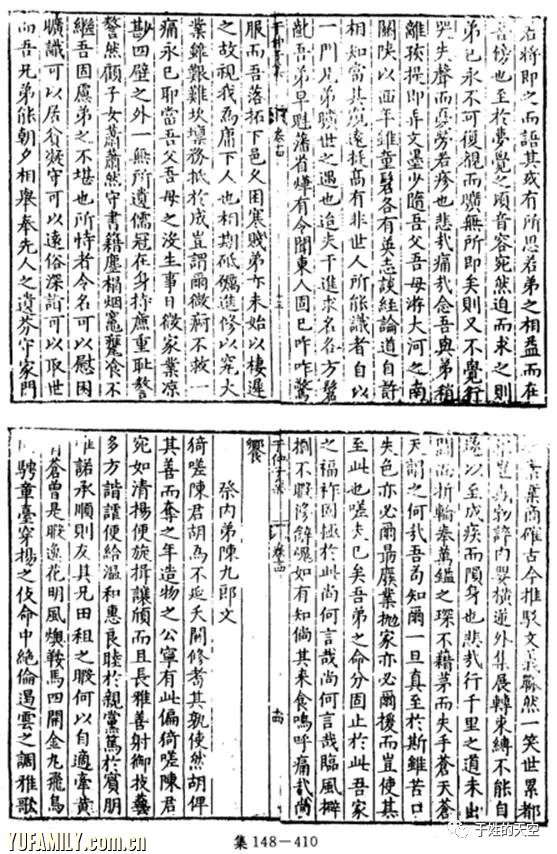 若將即之語其或有所思若弟之相益而在
吾傍也至於夢覺之頃音容宛然迫而求之則
弟已永不可復視而曠無所即矣則又不覺行
哭失聲而
若疹也悲哉痛哉念吾與弟稍
離孩提即弄文墨少隨吾父吾母將大河之南
關陝以西年雖童髫各有並志談經論道自許
相知當其
遠抚高有非世人所能識者自以
一門兄弟曠世之遇也迨夫干進求名名方
吾弟早
藩省嘩有令聞東人固已咋咋驚
于仲子集 卷十四
服而吾落拓下邑又困寒賤弟亦未始以棲遲
之故視我為庸下人也相期砥礪進修以究大
業雖艱難坎壈務抵於成豈謂爾微
不救一
痛永已耶當吾父吾母之没生事日微家業凉
四壁之外一無所遺儒冠在身持麈重恥
然顧子女蕭蕭然守書籍塵榻烟竈
食不
繼吾固慮弟之不堪也所恃者令名可以慰困
曠識可以居貧凝守可以遠俗深
可以取世
而吾兄弟能朝夕相舉奉先人之遺
守家門
業商確古今推
文義
然一笑世累都
物諱内嬰横逆外集展轉束縛不能自
以至成疾而隕身也悲哉行千里之道未出
而折輪奏萬鎰之琛不藉茅而失手蒼天蒼
天謂之何哉吾苟知爾一旦真至於斯雖苦口
失色亦必爾
厥業抛家亦必爾援而豈使其
至此也嗟夫已矣吾弟之命分固止於此吾家
之福祚固極於此尚何言哉尚何言哉臨風
捬不暇
辭魂如有知倘其来食嗚呼痛哉尚
于仲子集 卷十四 十四
饗
祭内弟陳九郎文
猗嗟陳君胡為不延夭閼修者其孰使然胡俾
其善而奪之年造物之公寧有此偏猗嗟陳君
宛如清揚便旋揖讓頎而且長雅善射御技藝
多方諧謔便給温和惠良睦於親黨篤於賓朋
諾承順則友其兄田租之暇何以自適牽黄
蒼曾是暇逸花明風煗鞍馬四開金丸飛鳥
騁童臺穿楊之伎命中絶倫遏雲之調雅歌
集 148－410
YUFAMILY.com.cn
子姓的天空